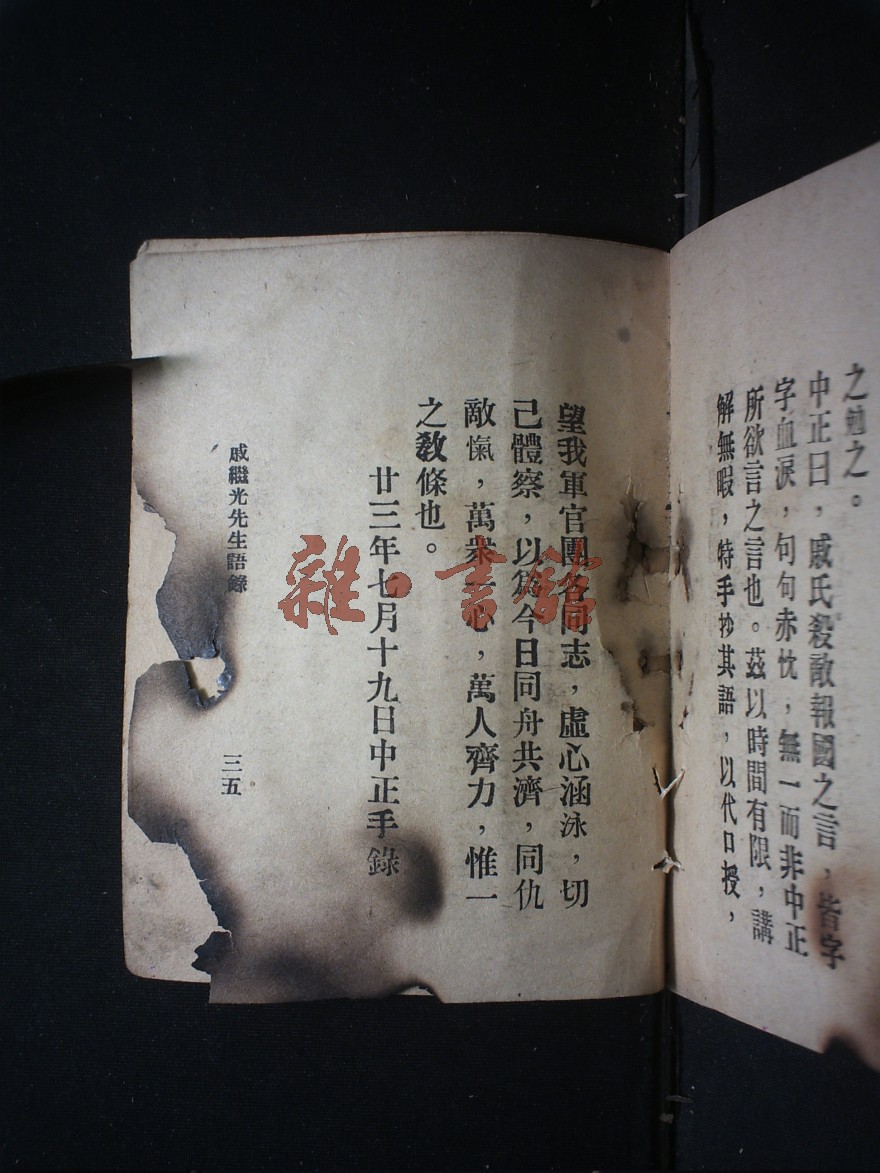 之勉之。
中正曰，戚氏殺敵報國之言，皆字
字血淚，句句赤忱，無一而非中正
所欲言之言也。茲以時間有限，講
解無暇，特手抄其語，以代口授，
望我軍官團各同志，虛心涵泳，切
己體察，以爲今日同舟共濟，同仇
敵愾，萬衆一心，萬人齊力，惟一
之敎條也。
廿三年七月十九日中正手錄
戚繼光先生語錄
三五
雜·書館